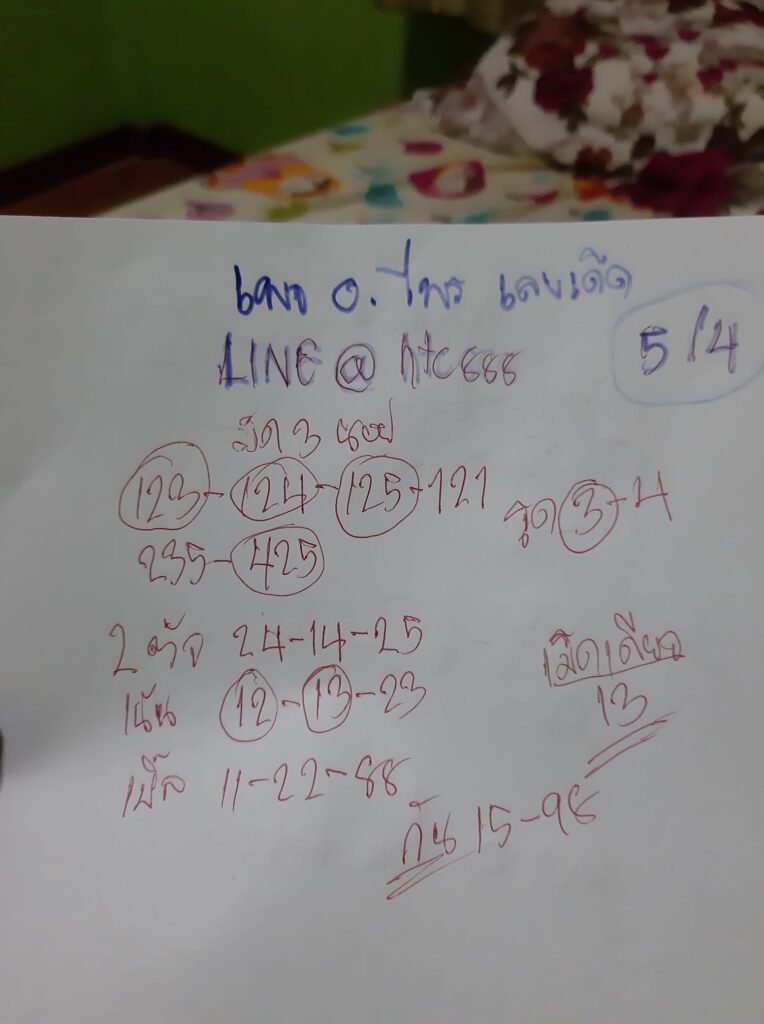 เพจ อ. ไพร เลขเด็ด
LINE @ htc888
5/4
มัด 3 หอย
123-124-125-121
235-425
รูด 3-4
2 ตัว 24-14-25
เน้น 12-13-23
เบิ้ล 11-22-88
เม็ดเดียว
13
กัน 15-98